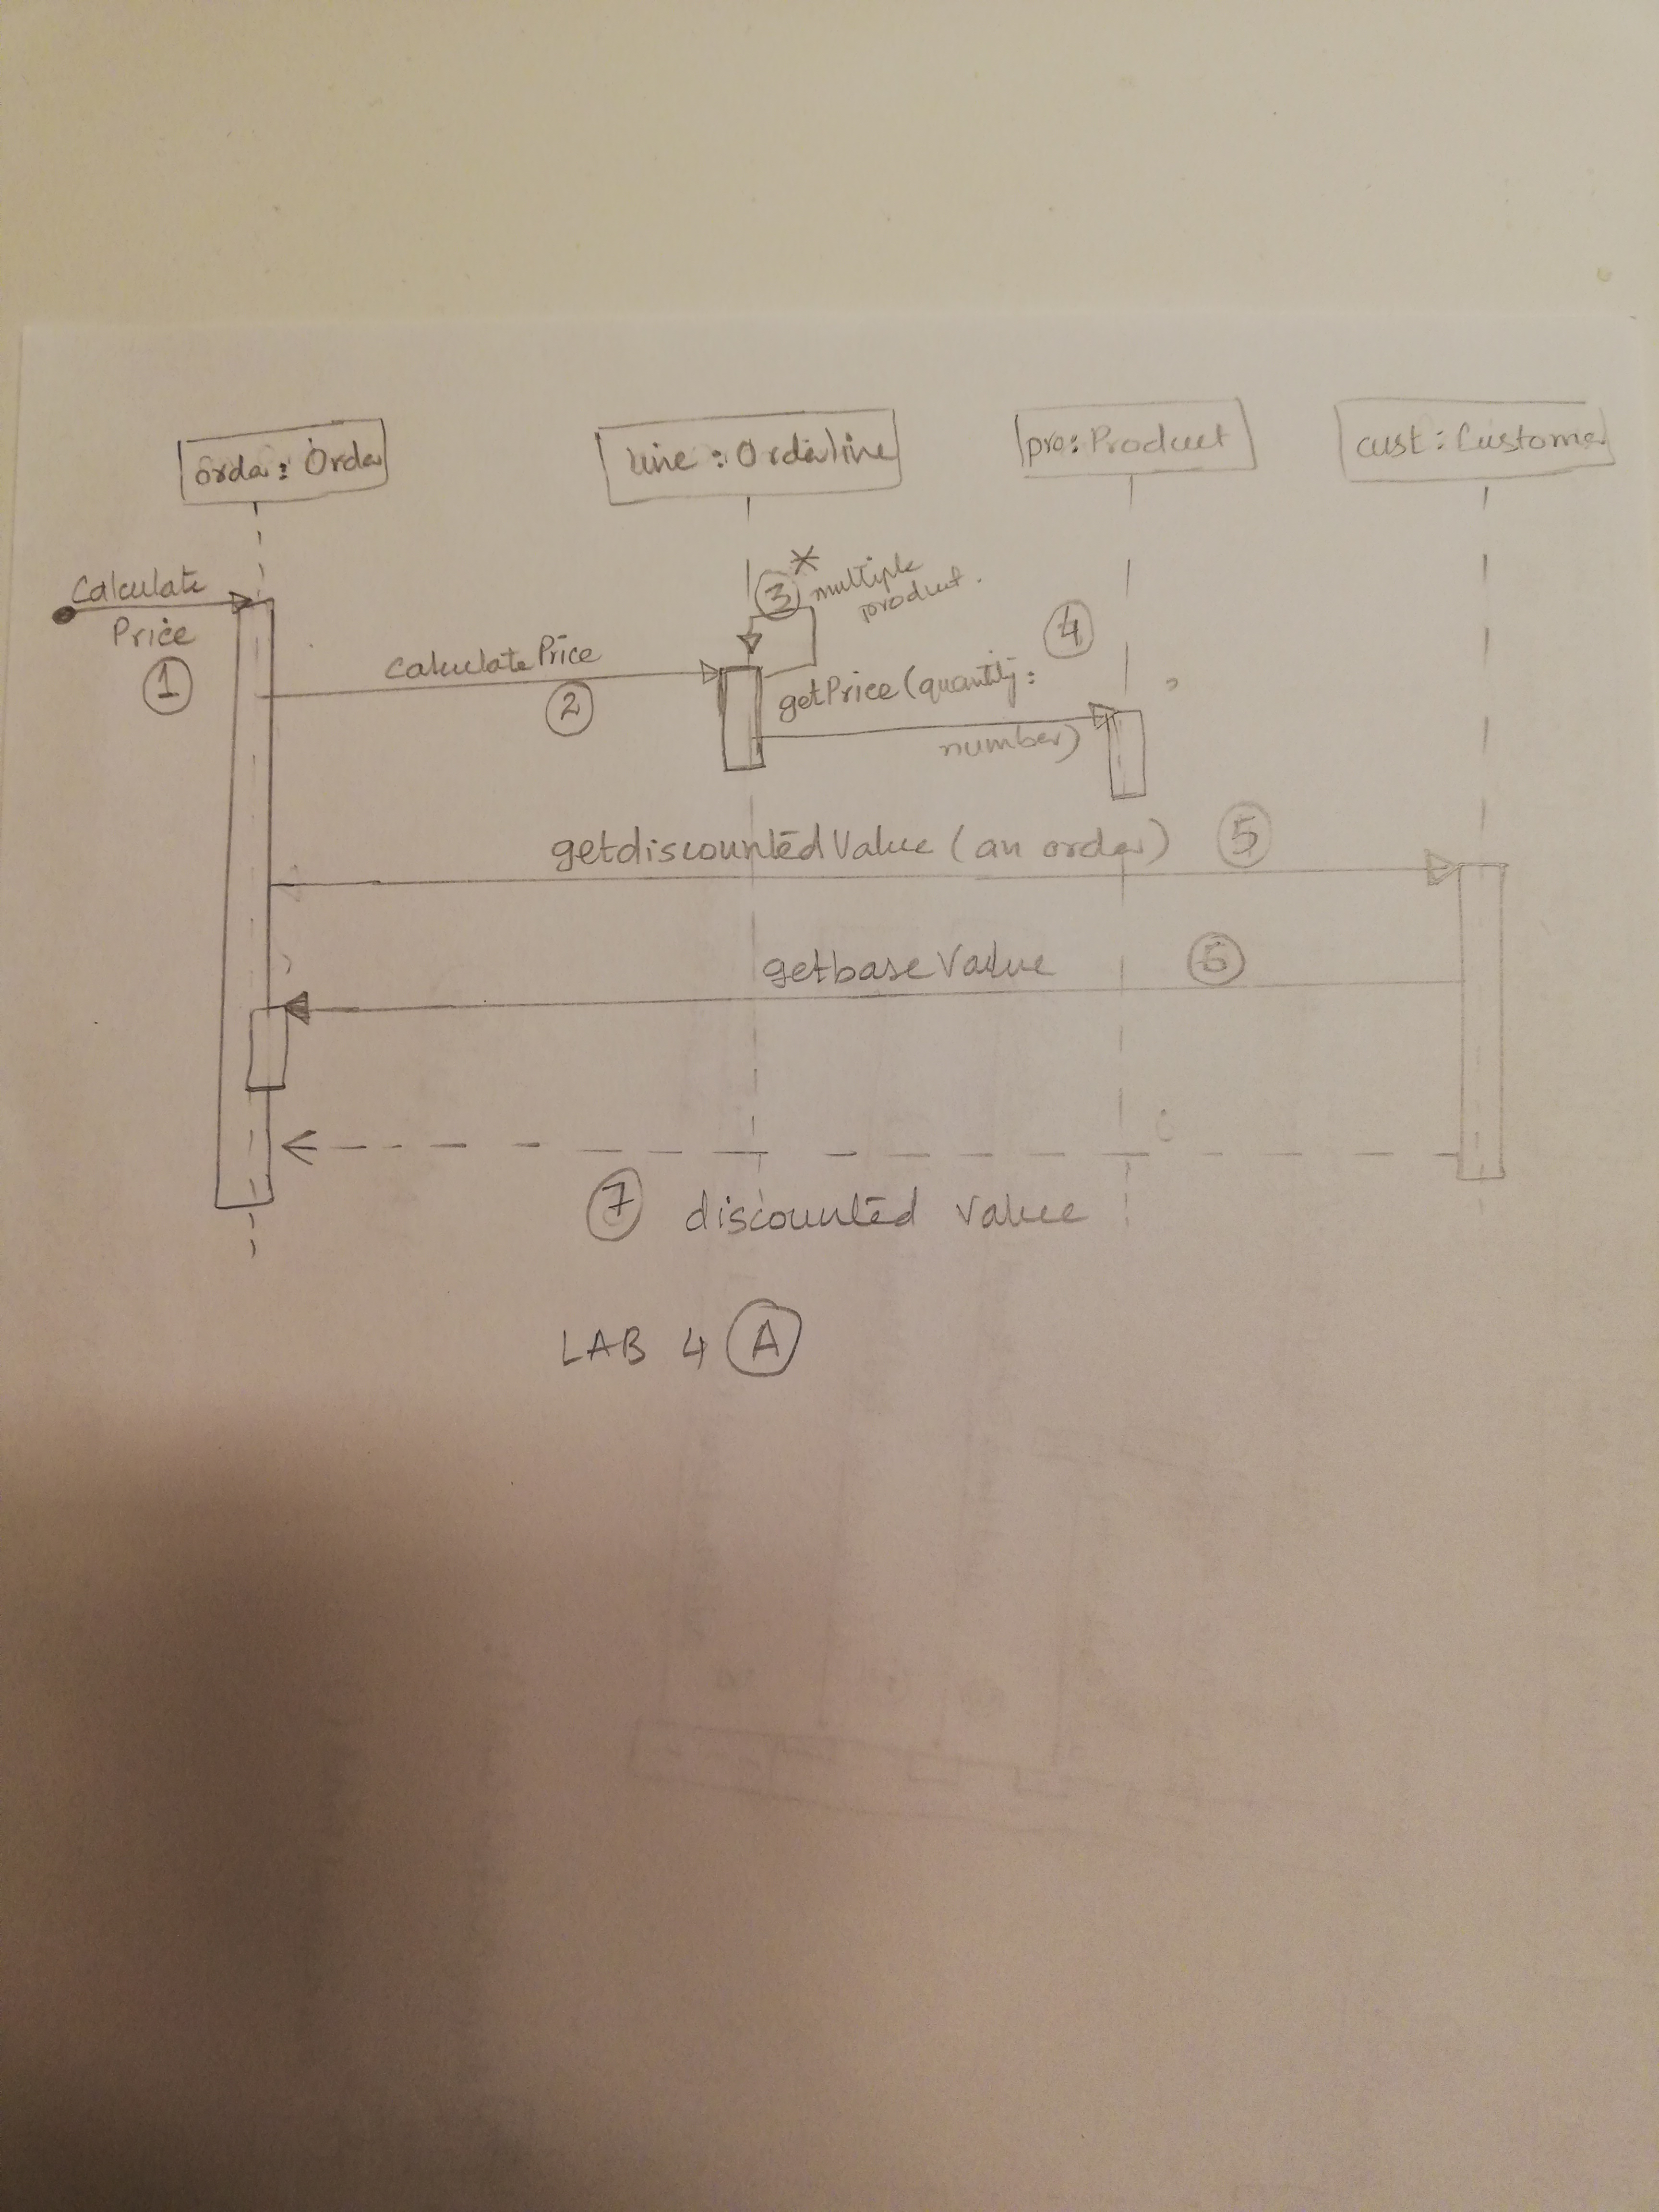 order : Order
line : Orderline
pro: Product
cust : Customer
Calculate
Price
1
calculate Price
2
*
3 multiple
product.
4
getPrice (quantity :
number)
getdiscounted Value (an order) 5
getbase Value 6
7 discounted value
LAB 4 A